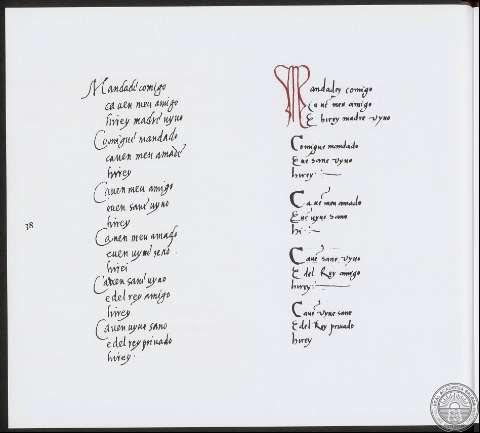 Mandad'comigo
ca uen meu amigo
hirey madr'e uyuo
Comigue' mandado
ca uen meu amado
hirey
Ca uen meu amigo
euen sane' uyuo
hirey
Ca uen meu amado
euen uyue' sano
hirei
Ca uen sane' uyuo
e del rey amigo
hirey
Ca uen uyue sano
e del rey priuado
hirey.
38
Mandadey comigo
Ca ue' meu amigo
E hirey madre uyuo
Comigue mandado
Ca ue' meu amado
E ue' uyue sano
hi
Ca ue' sane uyuo
E del Rey amigo
hirey
Ca ue' uyue sane
E del Rey priuado
hirey